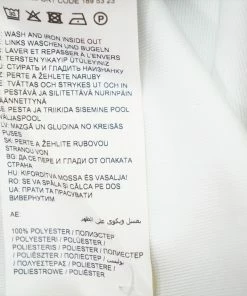 ORT CODE 189 53 23
WASH AND IRON INSIDE OUT
: LINKS WASCHEN UND BÜGELN
: LAVER ET REPASSER À L'ENVERS
: TERSTEN YIKAYIP ÜTÜLEYİNİZ
: СТИРАТЬ И ГЛАДИТЬ НАИЗНАНКУ
: PERTE A ŽEHLETE NARUBY
: TVÄTTAS OCH STRYKES UT OCH IN
: PESTÄVÄ JA SILITETTÄVÄ NURINPÄIN
ÄÄNNETTYNÄ
: PESTA JA TRIIKIDA SISEMINE POOL
VÄLJASPOOL
LV: MAZGĀT UN GLUDINA NO KREISĀS
PUSES
SK: PERTE A ŽEHLITE RUBOVOU
STRANOU VON
BG: ДА СЕ ПЕРЕ И ГЛАДИ ОТ ОПАКАТА
СТРАНА
HU: KIFORDÍTVA MOSSA ÉS VASALJA!
RO: SE VA SPĂLA ȘI CĂLCA PE DOS
UA: ПРАТИ ТА ПРАСУВАТИ
ВИВЕРНУТИМ
AE
يغسل ويكوى على الظهر
100% POLYESTER / ПОЛИЭСТЕР
/ POLYESTERI / POLIÉSTER /
POLIESTERIS / ПОЛИЕСТЕР /
POLIESTER / ПОЛІЕСТЕР / بوليستر
/ POLYESTER / POLIESTERS /
PÓLIESTROWE / POLIÉSZTER